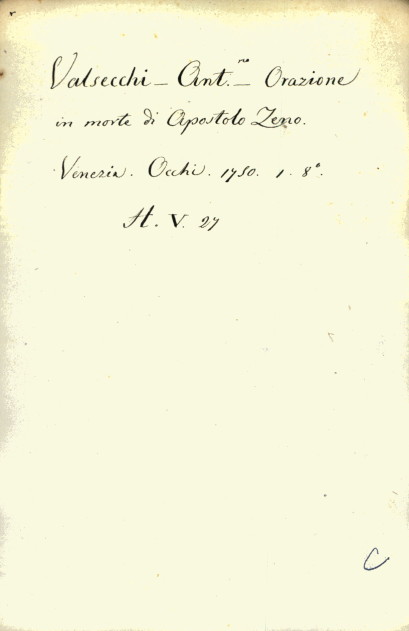 Valsecchi - Ant.no - Orazione
in morte di Apostolo Zeno.
Venezia. Occhi. 1750. 1. 8°.
H. V. 27
C